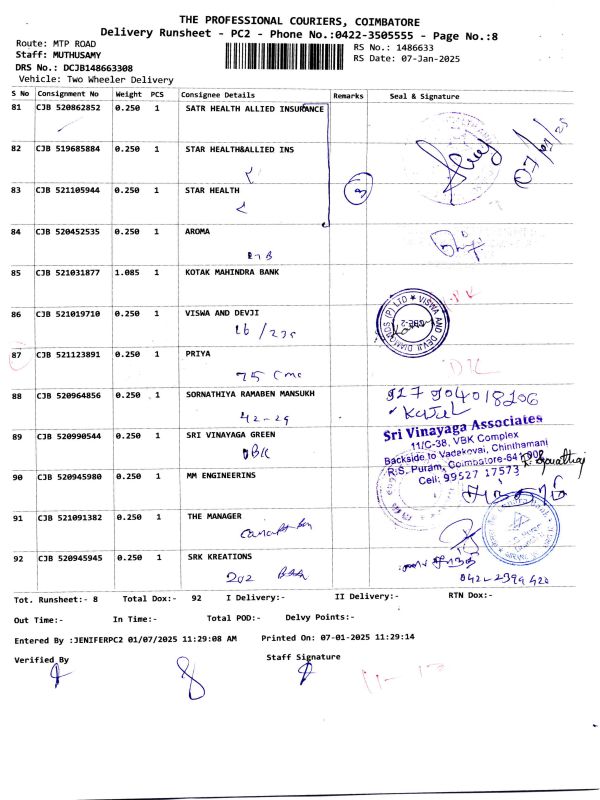 THE PROFESSIONAL COURIERS, COIMBATORE
Delivery Runsheet - PC2 - Phone No.:0422-3505555 - Page No.:8
Route: MTP ROAD
Staff: MUTHUSAMY
DRS No.: DCJB148663308
Vehicle: Two Wheeler Delivery
RS No.: 1486633
RS Date: 07-Jan-2025
S No Consignment No Weight PCS Consignee Details Remarks Seal & Signature
81 CJB 520862852 0.250 1 SATR HEALTH ALLIED INSURANCE
07/01/25
82 CJB 519685884 0.250 1 STAR HEALTH&ALLIED INS
83 CJB 521105944 0.250 1 STAR HEALTH
3
84 CJB 520452535 0.250 1 AROMA
85 CJB 521031877 1.085 1 KOTAK MAHINDRA BANK
86 CJB 521019710 0.250 1 VISWA AND DEVJI
VISWA AND DEVJI DIAMONDS (P) LTD
CBE-2
87 CJB 521123891 0.250 1 PRIYA
88 CJB 520964856 0.250 1 SORNATHIYA RAMABEN MANSUKH
42-29
89 CJB 520990544 0.250 1 SRI VINAYAGA GREEN
Sri Vinayaga Associates
11/C-38, VBK Complex
Backside to Vadekovai, Chinthamani
R.S. Puram, Coimbatore-641 002
Cell: 99527 17573
90 CJB 520945980 0.250 1 MM ENGINEERINS
91 CJB 521091382 0.250 1 THE MANAGER
92 CJB 520945945 0.250 1 SRK KREATIONS
202
0422-2399420
Tot. Runsheet:- 8 Total Dox:- 92 I Delivery:- II Delivery:- RTN Dox:-
Out Time:- In Time:- Total POD:- Delvy Points:-
Entered By :JENIFERPC2 01/07/2025 11:29:08 AM Printed On: 07-01-2025 11:29:14
Verified By Staff Signature